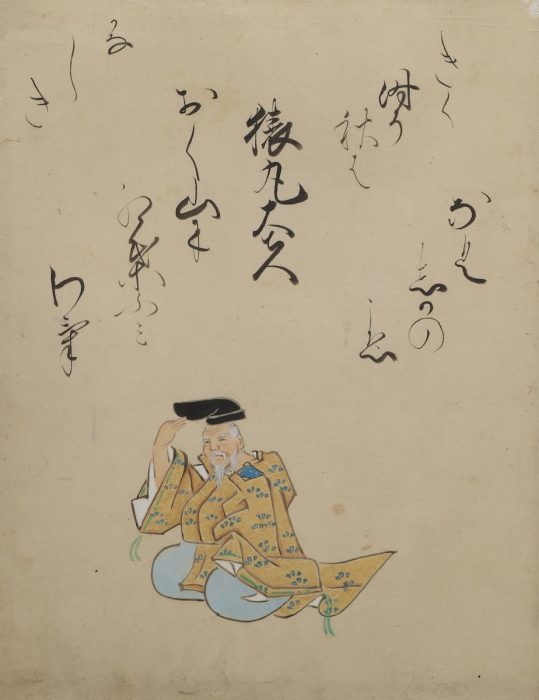 猿丸大夫
おく山に
紅葉ふミ
わ氣
なく
志かの
こゑ
きく
時そ
秋は
かな
し
き